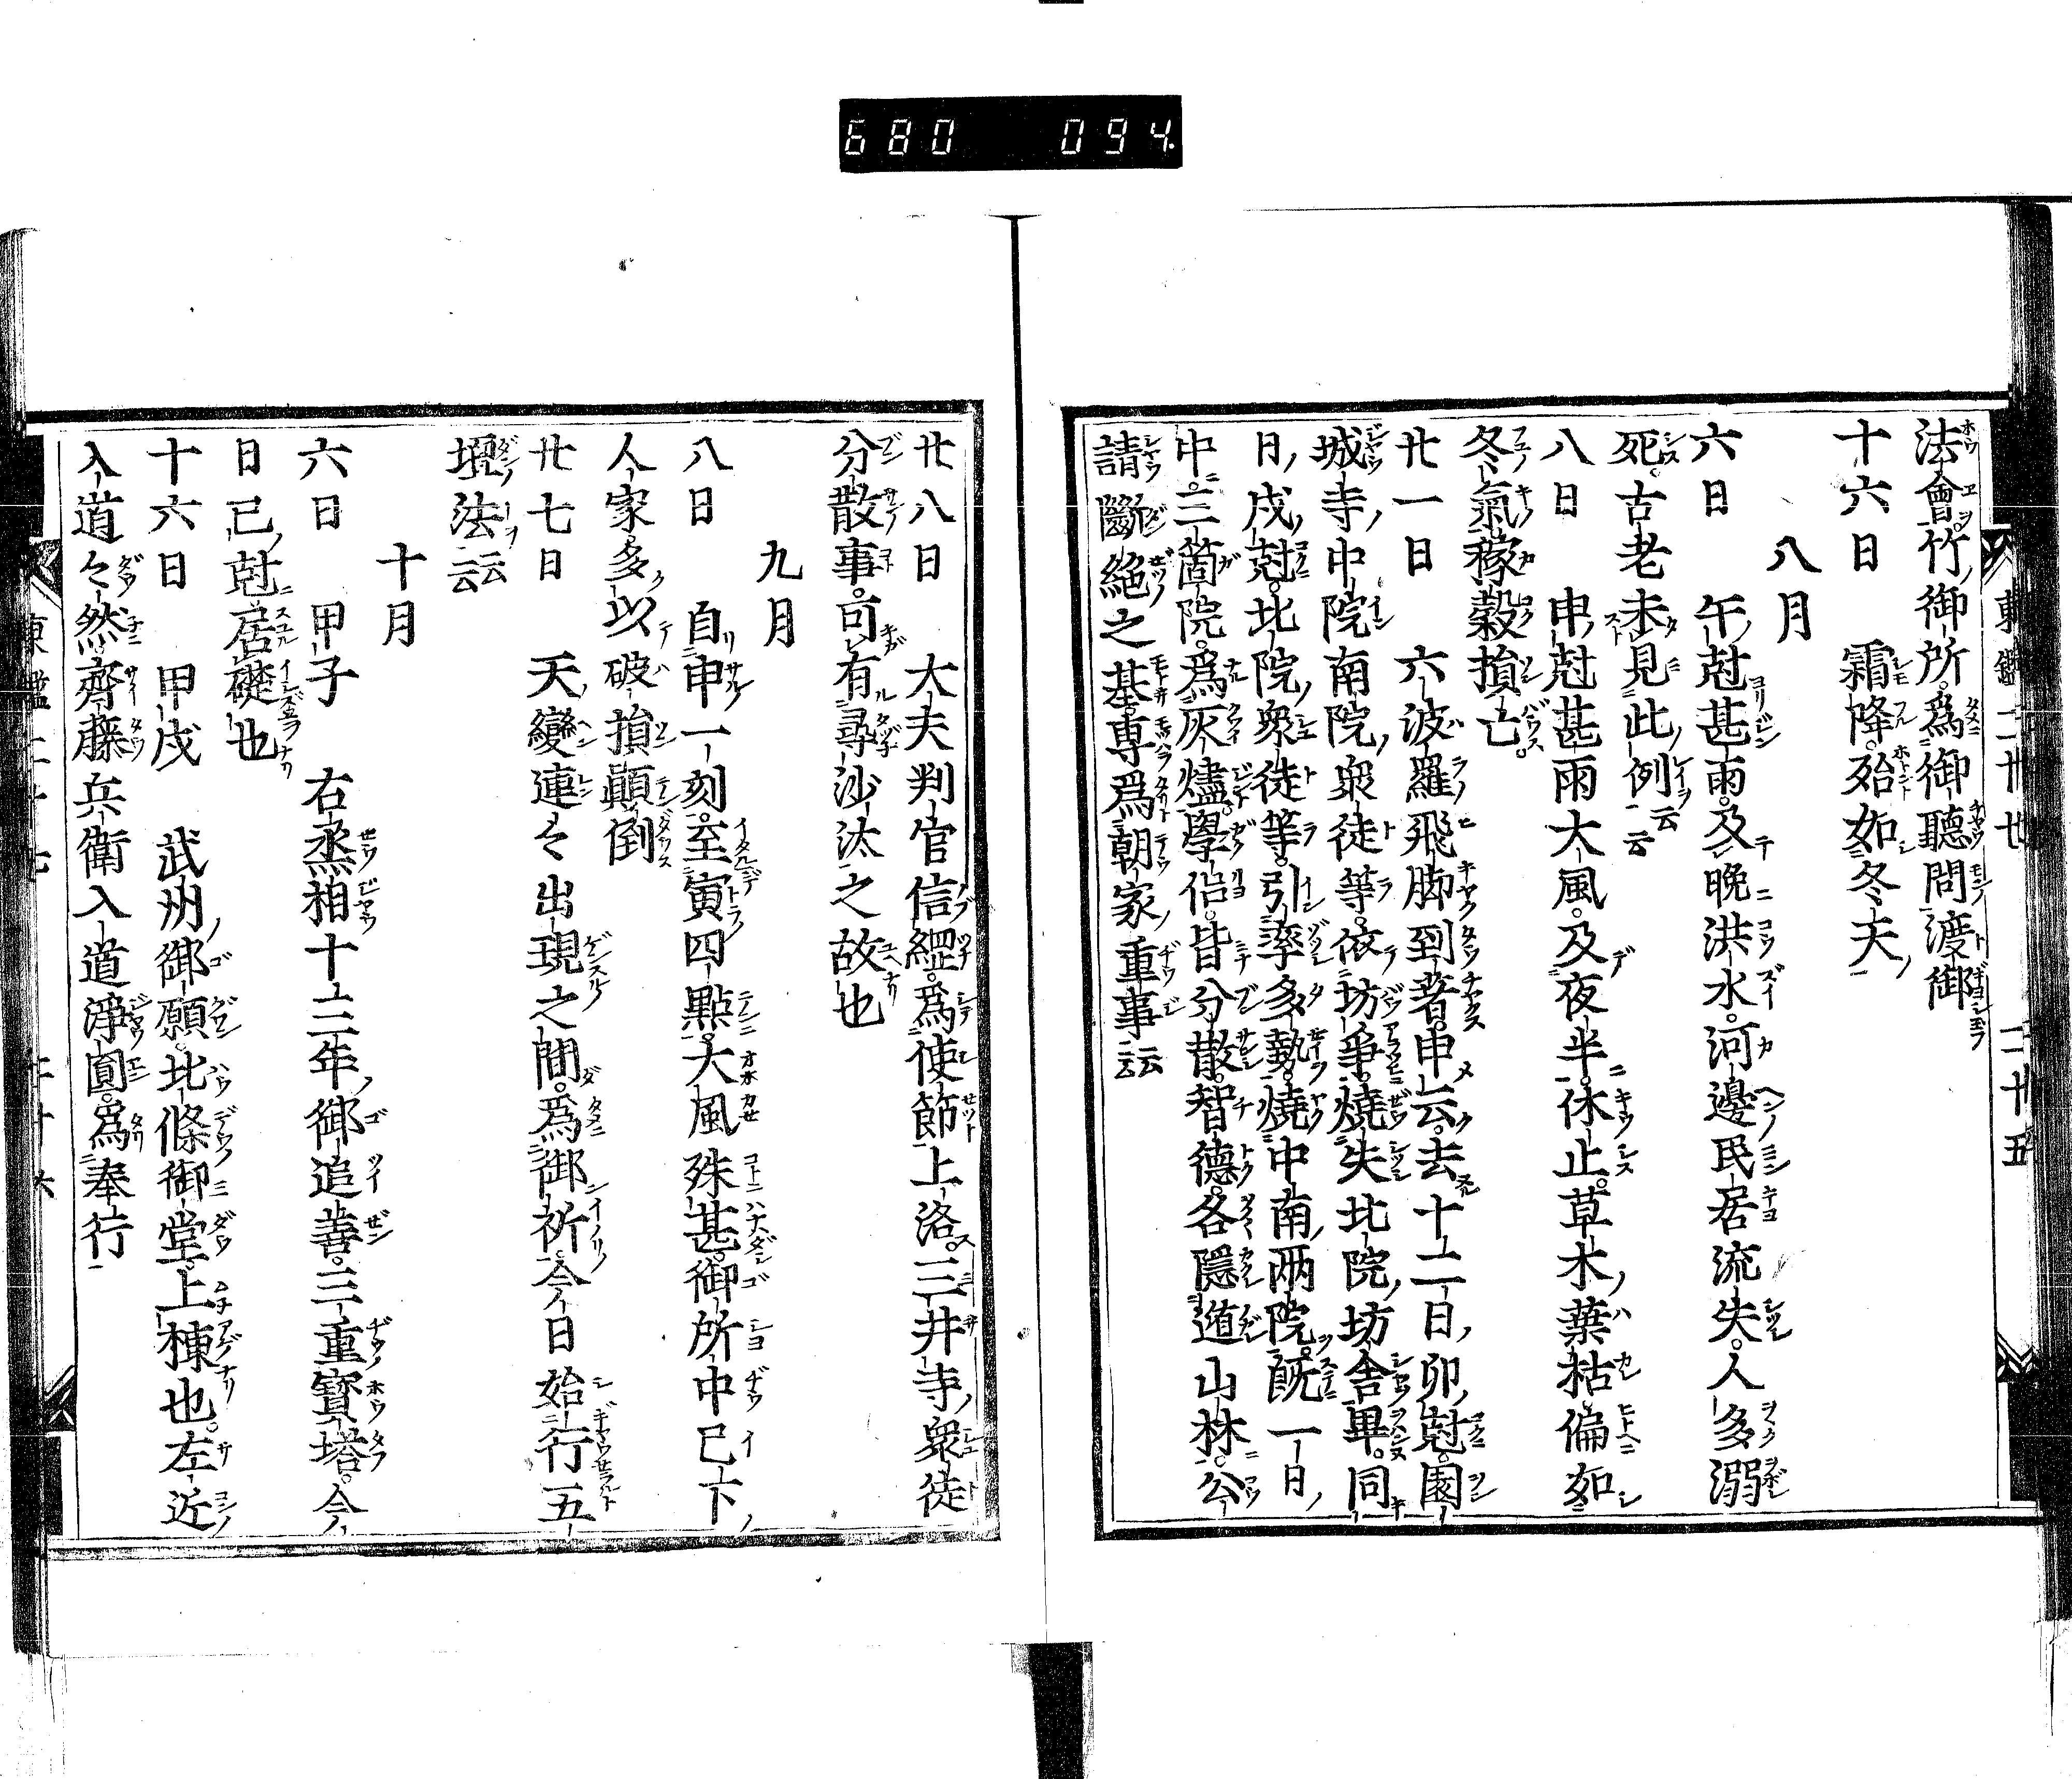 680 094
法會竹御所爲御聽聞渡御
十六日 霜降殆如冬天
八月
六日 午尅甚雨及晩洪水河邊民居流失人多溺
死古老未見此例云云
八日 申尅甚雨大風及夜半休止草木葉枯偏如
冬氣稼穀損亡
廿一日 六波羅飛脚到著申云去十二日卯尅園
城寺中院南院衆徒等依坊爭燒失北院坊舍畢同
日戌尅北院衆徒等引率多勢燒中南兩院既一日
中三箇院爲灰燼學侶皆分散智德各隱遁山林公
請斷絕之基專爲朝家重事云云
廿八日 大夫判官信綱爲使節上洛三井寺衆徒
分散事可有尋沙汰之故也
九月
八日 自申一刻至寅四點大風殊甚御所中已下
人家多以破損顚倒
廿七日 天變連々出現之間爲御祈今日始行五
壇法云云
十月
六日 甲子 右丞相十三年御追善三重寶塔今
日已尅居礎也
十六日 甲戌 武州御願北條御堂上棟也左近
入道々然齊藤兵衛入道淨圓爲奉行